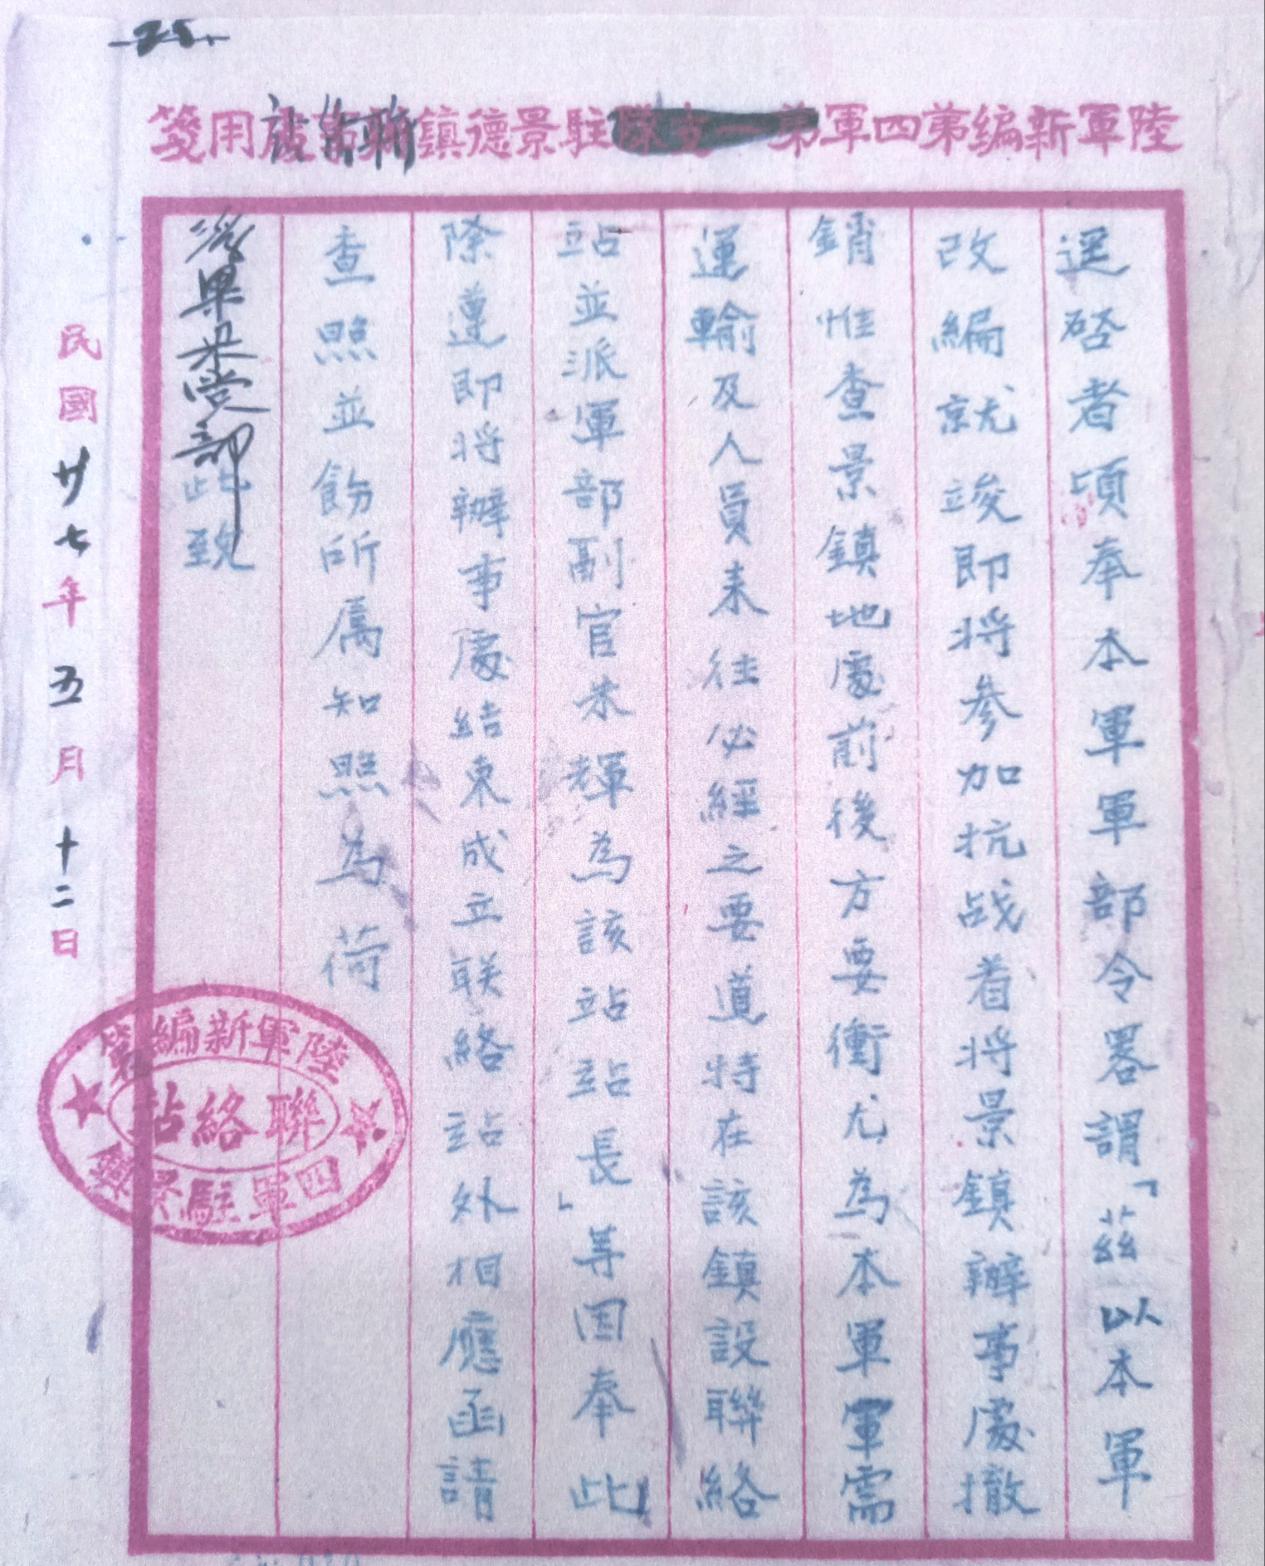 25.
陸軍新編第四軍第一支隊駐景德鎮聯絡站用箋
逕啓者頃奉本軍軍部令畧謂「茲以本軍
改編就竣即將參加抗战着将景鎮辦事處撤
銷惟查景鎮地處前後方要衝尤為本軍軍需
運輸及人員来往必經之要道特在該鎮設聯絡
站並派軍部副官朱輝為該站站長」等因奉此
除遵即将辦事處結束成立联絡站外相應函請
查照並飭所属知照為荷
此致
民國廿七年五月十二日
陸軍新編第
聯絡站
四軍駐景鎮